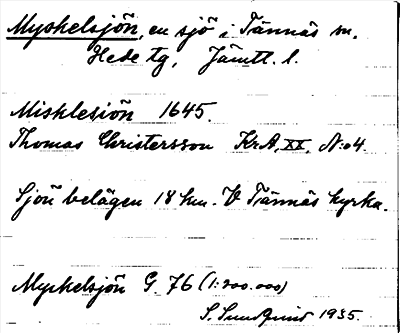 Myskelsjön, en sjö i Tännäs sn.
Hede tg, Jämtl. l.
Misklesiön 1645.
Thomas Christersson KrA, XX, N:o 4.
Sjön belägen 18 km. V Tännäs kyrka.
Myskelsjön G. 76 (1:200.000)
S. Sundquist 1935.